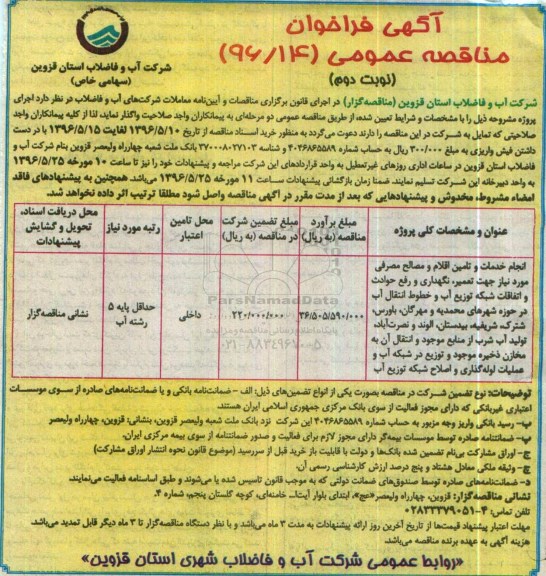 آگهی فراخوان
مناقصه عمومی (۹۶/۱۴)
(نوبت دوم)
شرکت آب و فاضلاب استان قزوین
(سهامی خاص)
شرکت آب و فاضلاب استان قزوین (مناقصه‌گزار) در اجرای قانون برگزاری مناقصات و آیین‌نامه معاملات شرکت‌های آب و فاضلاب در نظر دارد اجرای
پروژه مشروحه ذیل را با مشخصات و شرایط تعیین شده، از طریق مناقصه عمومی دو مرحله‌ای به پیمانکاران واجد صلاحیت واگذار نماید، لذا از کلیه پیمانکاران واجد
صلاحیتی که تمایل به شرکت در این مناقصه را دارند دعوت می‌گردد به منظور خرید اسناد مناقصه از تاریخ ۱۳۹۶/۵/۱۰ لغایت ۱۳۹۶/۵/۱۵ با در دست
داشتن فیش واریزی به مبلغ ۳۰۰/۰۰۰ ریال به حساب شماره ۴۰۴۶۸۶۵۵۸۹ و شناسه ۳۷۰۰۰۸۰۲۷۱۰۳ بانک ملت شعبه چهارراه ولیعصر قزوین بنام شرکت آب و
فاضلاب استان قزوین در ساعات اداری روزهای غیرتعطیل به واحد قراردادهای این شرکت مراجعه و پیشنهادات خود را نیز تا ساعت ۱۰ مورخه ۱۳۹۶/۵/۲۵
به واحد دبیرخانه این شرکت تسلیم نمایند. ضمنا زمان بازگشائی پیشنهادات ساعت ۱۱ مورخه ۱۳۹۶/۵/۲۵ می‌باشد. همچنین به پیشنهادهای فاقد
امضاء مشروط، مخدوش و پیشنهادهایی که بعد از مدت مقرر در آگهی مناقصه واصل شود مطلقا ترتیب اثر داده نخواهد شد.
عنوان و مشخصات کلی پروژه
مبلغ برآورد مناقصه (به ریال)
مبلغ تضمین شرکت در مناقصه (به ریال)
محل تامین اعتبار
رتبه مورد نیاز
محل دریافت اسناد، تحویل و گشایش پیشنهادات
انجام خدمات و تامین اقلام و مصالح مصرفی
مورد نیاز جهت تعمیر، نگهداری و رفع حوادث
و اتفاقات شبکه توزیع آب و خطوط انتقال آب
در حوزه شهرهای محمدیه و مهرگان، باورس،
شترک، شریفیه، بیدستان، الوند و نصرت‌آباد،
تولید آب شرب از منابع موجود و انتقال آن به
مخازن ذخیره موجود و توزیع در شبکه آب و
عملیات لوله‌گذاری و اصلاح شبکه توزیع آب
۳۶/۵۰۵/۵۹۰/۰۰۰
۲۲۰/۰۰۰/۰۰۰
داخلی
حداقل پایه ۵ رشته آب
نشانی مناقصه‌گزار
ParsNamadData
پایگاه اطلاع رسانی مناقصه و مزایده
۰۲۱-۸۸۳۴۹۶۷۰-۵
توضیحات: نوع تضمین شرکت در مناقصه بصورت یکی از انواع تضمین‌های ذیل: الف - ضمانت‌نامه بانکی و یا ضمانت‌نامه‌های صادره از سوی موسسات
اعتباری غیربانکی که دارای مجوز فعالیت از سوی بانک مرکزی جمهوری اسلامی ایران هستند.
ب- رسید بانکی واریز وجه مزبور به حساب شماره ۴۰۴۶۸۶۵۵۸۹ این شرکت نزد بانک ملت شعبه ولیعصر قزوین، بنشانی: قزوین، چهارراه ولیعصر
پ- ضمانتنامه صادره توسط موسسات بیمه‌گر دارای مجوز لازم برای فعالیت و صدور ضمانتنامه از سوی بیمه مرکزی ایران.
ج- اوراق مشارکت بی‌نام تضمین شده بانک‌ها و دولت با قابلیت باز خرید قبل از سررسید (موضوع قانون نحوه انتشار اوراق مشارکت)
چ- وثیقه ملکی معادل هشتاد و پنج درصد ارزش کارشناسی رسمی آن.
د- ضمانت‌نامه‌های صادره توسط صندوق‌های ضمانت دولتی که به موجب قانون تاسیس شده یا می‌شوند و طبق اساسنامه فعالیت می‌نمایند.
نشانی مناقصه‌گزار: قزوین، چهارراه ولیعصر«عج»، ابتدای بلوار آیت‌ا... خامنه‌ای، کوچه گلستان پنجم، شماره ۴.
تلفن تماس: ۴-۰۲۸۳۳۳۷۹۰۵۱
مهلت اعتبار پیشنهاد قیمت‌ها از تاریخ آخرین روز ارائه پیشنهادات به مدت ۳ ماه می‌باشد و با نظر دستگاه مناقصه‌گزار تا ۳ ماه دیگر قابل تمدید می‌باشد.
هزینه آگهی به عهده برنده مناقصه می‌باشد.
«روابط عمومی شرکت آب و فاضلاب شهری استان قزوین»